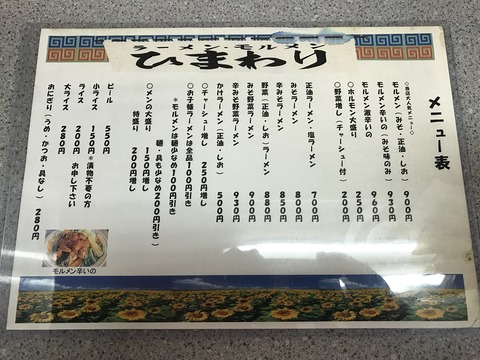 ラーメン・モルメン
ひまわり
メニュー表
◇当店の人気メニュー◇
モルメン(みそ・正油・しお) 900円
モルメン辛いの(みそ味のみ) 930円
モルメン激辛いの 960円
○ホルモン大盛り 250円
○野菜増し(チャーシュー付) 200円
正油ラーメン・塩ラーメン 700円
みそラーメン 800円
辛みそラーメン 850円
野菜(正油・しお)ラーメン 880円
みそ野菜ラーメン 900円
辛みそ野菜ラーメン 930円
かけラーメン(正油・しお) 500円
○チャーシュー増し 250円増し
○お子様ラーメンは全品100円引き
*モルメンは麺少なめ100円引き
麺・具も少なめ200円引き)
○メンの大盛り 150円増し
特盛り 200円増し
ビール 550円
小ライス 150円 *漬物不要の方
ライス 200円 お申し下さい
大ライス 280円
おにぎり(うめ・かつお・具なし) 280円
モルメン辛いの